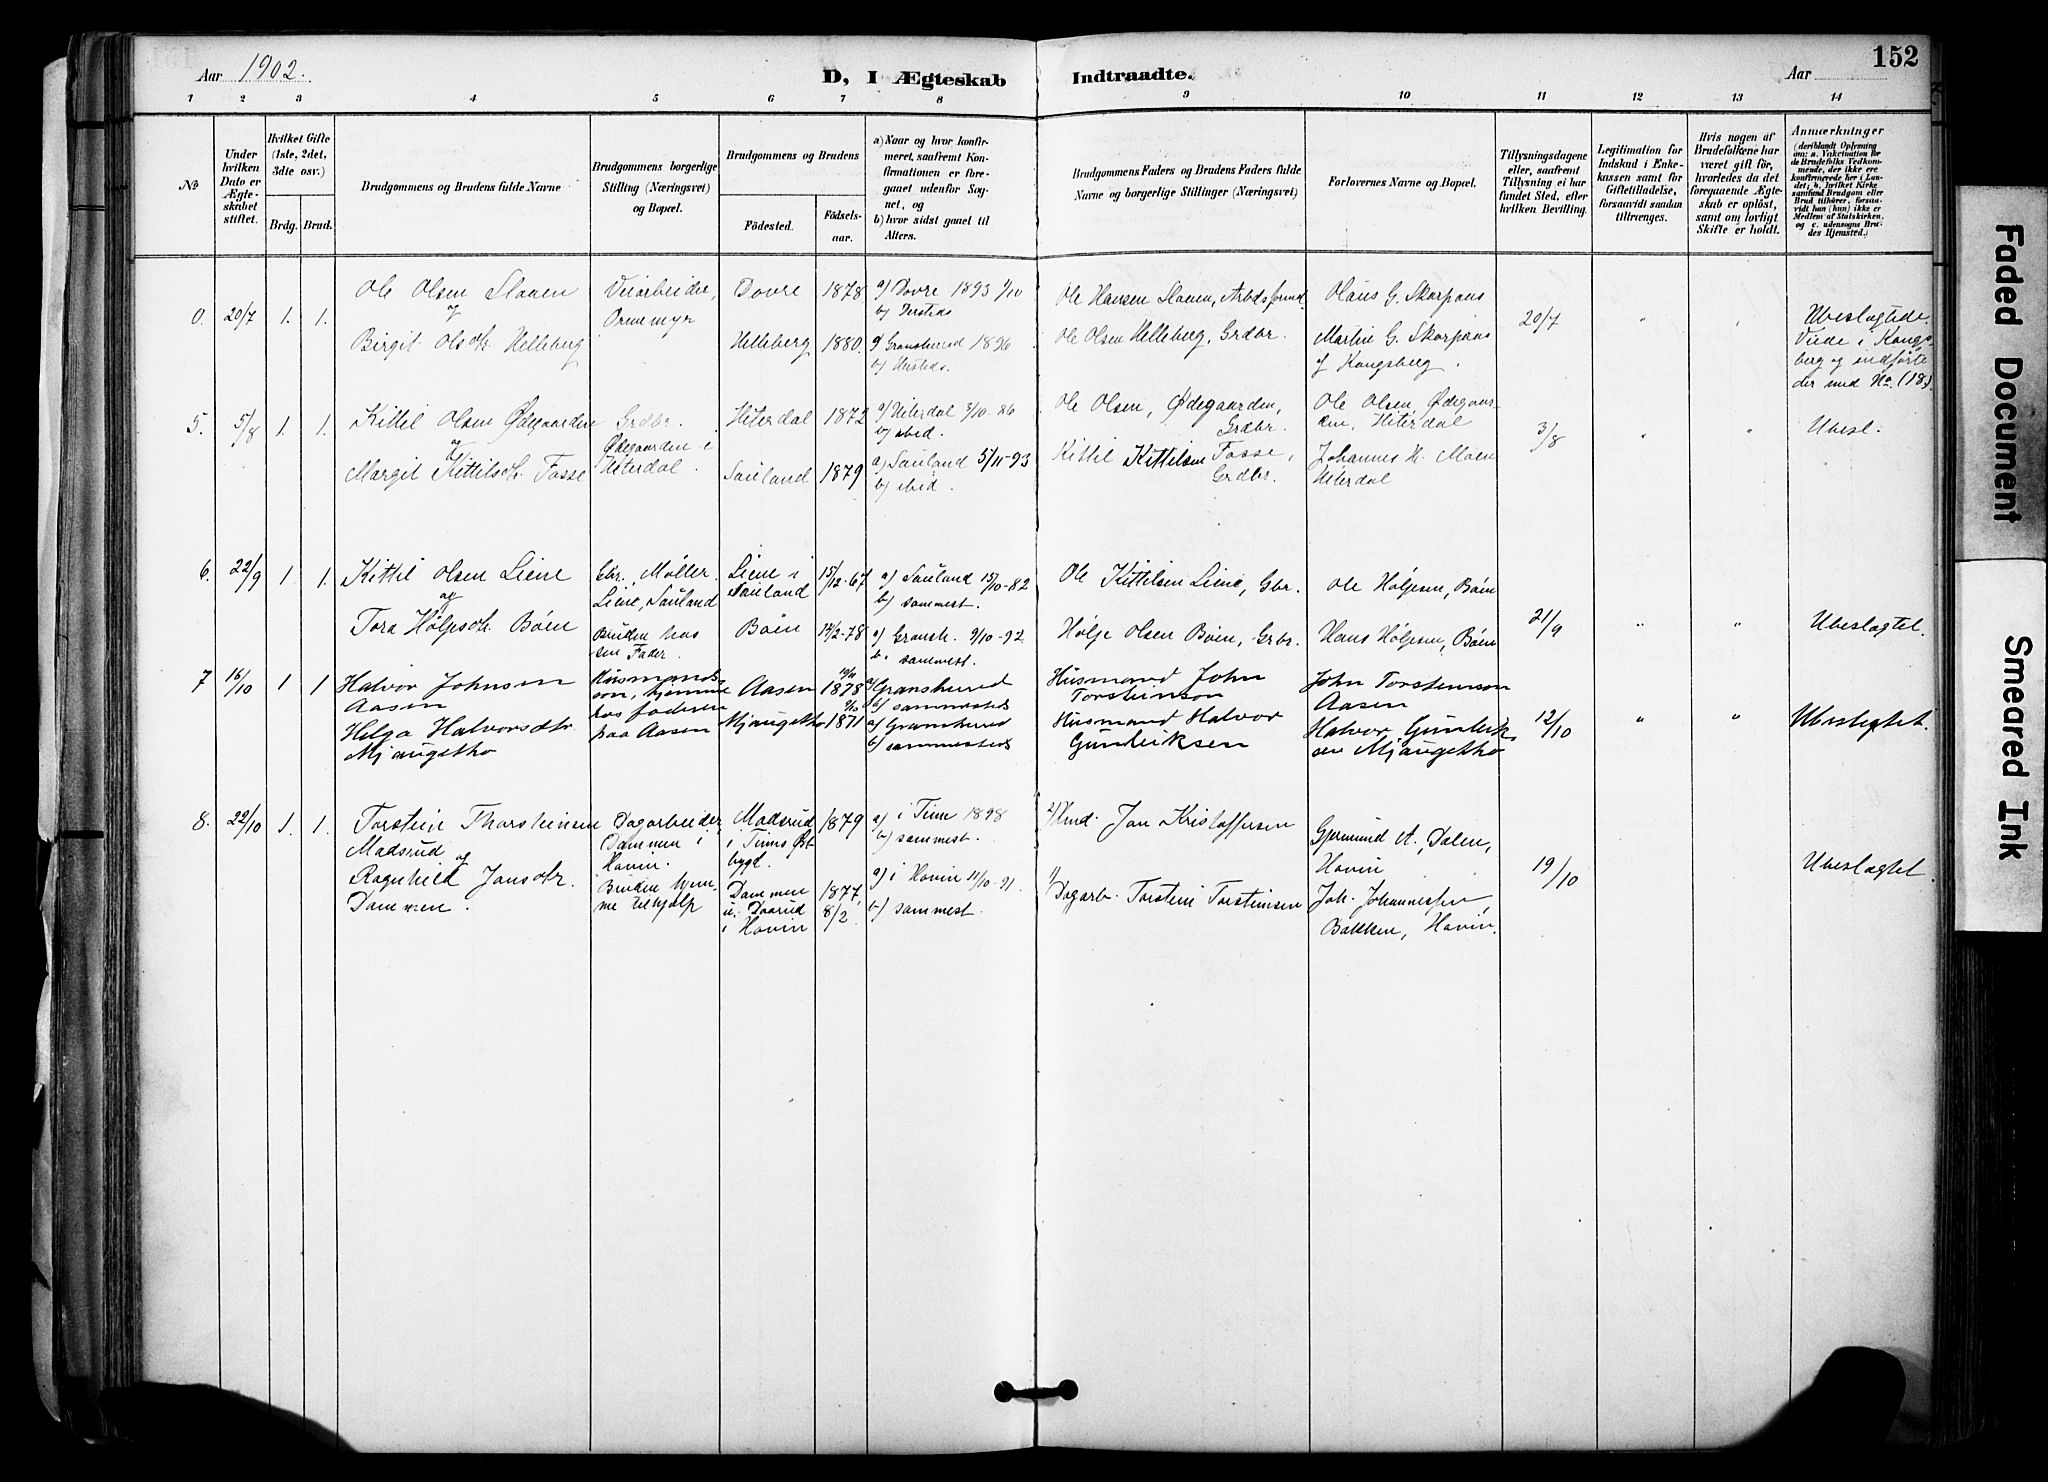 Aar 1902.
D, I Ægteskab Indtraadte.
Aar
152
1 2 3 4 5 6 7 8 9 10 11 12 13 14
No
Under hvilken Dato er Ægteskabet stiftet.
Hvilket Gifte (1ste, 2det, 3die osv.)
Brdg. Brud.
Brudgommens og Brudens fulde Navne
Brudgommens borgerlige Stilling (Næringsvei) og Bopæl.
Brudgommens og Brudens
Födested.
Födselsaar.
a) Naar og hvor konfirmeret, saafremt Konfirmationen er foregaaet udenfor Sognet, og
b) hvor sidst gaaet til Alters.
Brudgommens Faders og Brudens Faders fulde Navne og borgerlige Stillinger (Næringsvei)
Forlovernes Navne og Bopæl.
Tillysningsdagene eller, saafremt Tillysning ei har fundet Sted, efter hvilken Bevilling.
Legitimation for Indskud i Enkekassen samt for Giftetilladelse, forsaavidt saadan tiltrænges.
Hvis nogen af Brudefolkene har været gift för, hvorledes da det foregaaende Ægteskab er oplöst, samt om lovligt Skifte er holdt.
Anmærkninger
(deriblandt Oplysning om: a. Vakcination for de Brudefolks Vedkommende, der ikke ere konfirmerede her i Landet; b. hvilket Kirkesamfund Brudgom eller Brud tilhører, forsaavidt han (hun) ikke er Medlem af Statskirken, og c. udensogns Brudes Hjemsted.)
0. 20/7 1. 1.
Ole Olsen Slaaen
Birgit Olsdtr. Helleberg
Veiarbeider,
Ormemyr
Dovre 1878
Helleberg 1880.
a) Dovre 1893 1/10
b) Hersteds
a) Gransherred 1896
b) Hersteds.
Ole Hansen Slaaen, Arbdsformd.
Ole Olsen Helleberg, Grdbr.
Olaus G. Skarpaas
Martin G. Skarpaas
af Kongsberg.
20/7 " "
Ubeslægtede.
Viede i Kongsberg og indførte
der med No. (18).
5. 5/8 1. 1.
Kittil Olsen Ødegaarden
og
Margit Kittilsdtr. Fosse
Grdbr.
Ødegaarden i
Hiterdal.
Hiterdal 1872
Sauland 1879
a) Hiterdal 3/10-86
b) ibid.
a) Sauland 5/11-93
b) ibid.
Ole Olsen, Ødegaarden,
Grdbr.
Kittil Kittilsen Fosse,
Grdbr.
Ole Olsen, Ødegaarden, Hiterdal
Johannes H. Moen
Hiterdal
3/8 " "
Ubesl.
6. 22/9 1. 1.
Kittil Olsen Liene
og
Tora Høljesdtr. Bøen
Gbr., Møller.
Liene, Sauland
Bruden hos
sin Fader.
Liene i
Sauland 15/12-67
Bøen 14/2-78
a) Sauland 15/10-82
b) sammest.
a) Gransh. 9/10-92
b. sammest.
Ole Kittilsen Liene, Gbr.
Hølje Olsen Bøen, Grbr.
Ole Høljesen, Bøen
Hans Høljesen, Bøen
21/9 " "
Ubeslægtet.
7 16/10 1 1
Halvor Johnsen
Aasen
Helga Halvorsdtr.
Mjaugetho
Husmands-
søn, hjemme
hos faderen
paa Aasen
Aasen 1878
Mjaugetho 1871
a) Gransherred
b) sammesteds
a) Gransherred
b) sammesteds
Husmand John
Torsteinson
Husmand Halvor
Gunleiksen
John Torsteinson
Aasen
Halvor Gunleiksen Mjaugetho
12/10 " "
Ubeslægtet.
8. 22/10 1. 1.
Torstein Thorsteinsen
Madsrud og
Ragnhild Jansdtr.
Dammen.
Dagarbeider,
Dammen i
Hovin.
Bruden hjemme tilhjælp
Madsrud
i Tinns Østbygd. 1879
Dammen
u. Daarud
i Hovin 1877, 8/2
a) i Tinn 1898
b) sammest.
a) i Hovin 11/10-91
b) sammest.
2) Hmd. Jan Kristoffersen
1) Dagarb. Torstein Torsteinsen
Gjermund A. Dalen,
Hovin
Joh. Johannessen,
Bakken, Hovin.
19/10
Ubeslægtet.
Faded Document
Smeared Ink